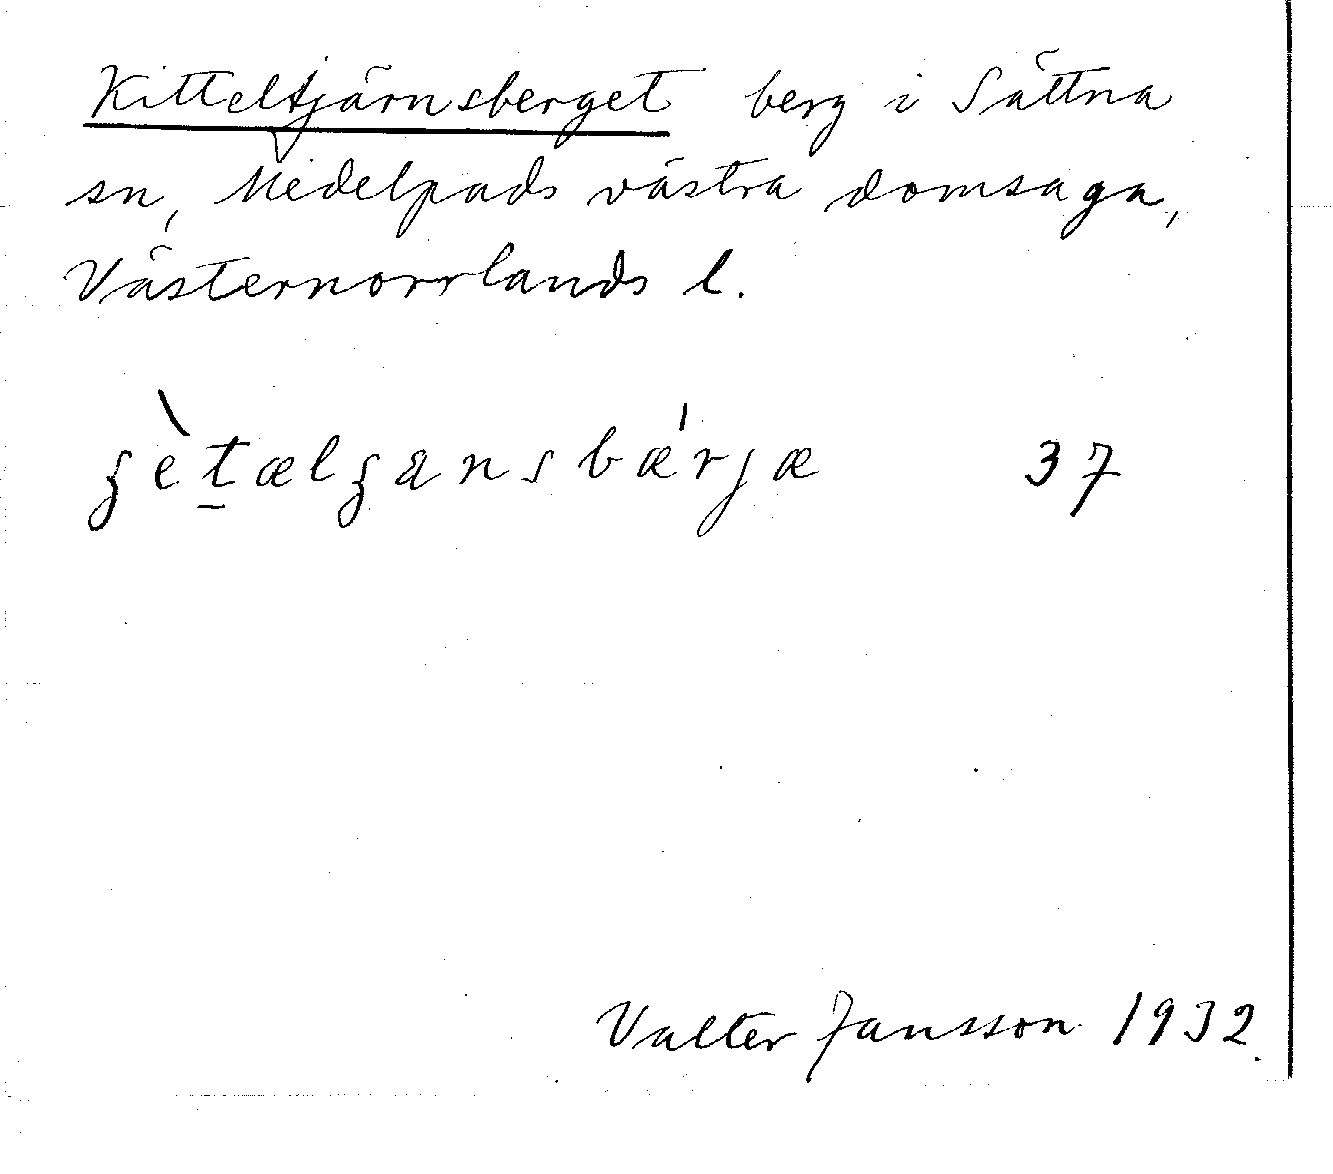 Kitteltjärnsberget berg i Sättna
sn, Medelpads västra domsaga,
Västernorrlands l.
ʒètælʒænsbǽrjæ 37
Valter Jansson 1932.